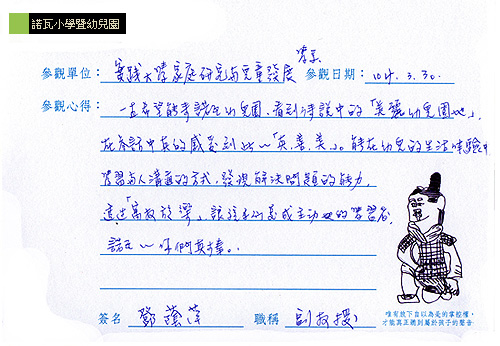 諾瓦小學暨幼兒園
參觀單位：實踐大學家庭研究與兒童發展學系 參觀日期：104.3.30.
參觀心得：一直希望能參訪諾瓦幼兒園，看到傳說中的「美麗幼兒園」，
在參訪中真的感受到此～「真、善、美」。能在幼兒的生活體驗中
學習與人溝通的方式，發現解決問題的能力，
這
讓孩子們養成主動的學習者，
諾瓦～你們真棒。
簽名 鄧蔭萍 職稱 副教授
唯有放下自以為是的掌控權，
才能真正聽到屬於孩子的聲音